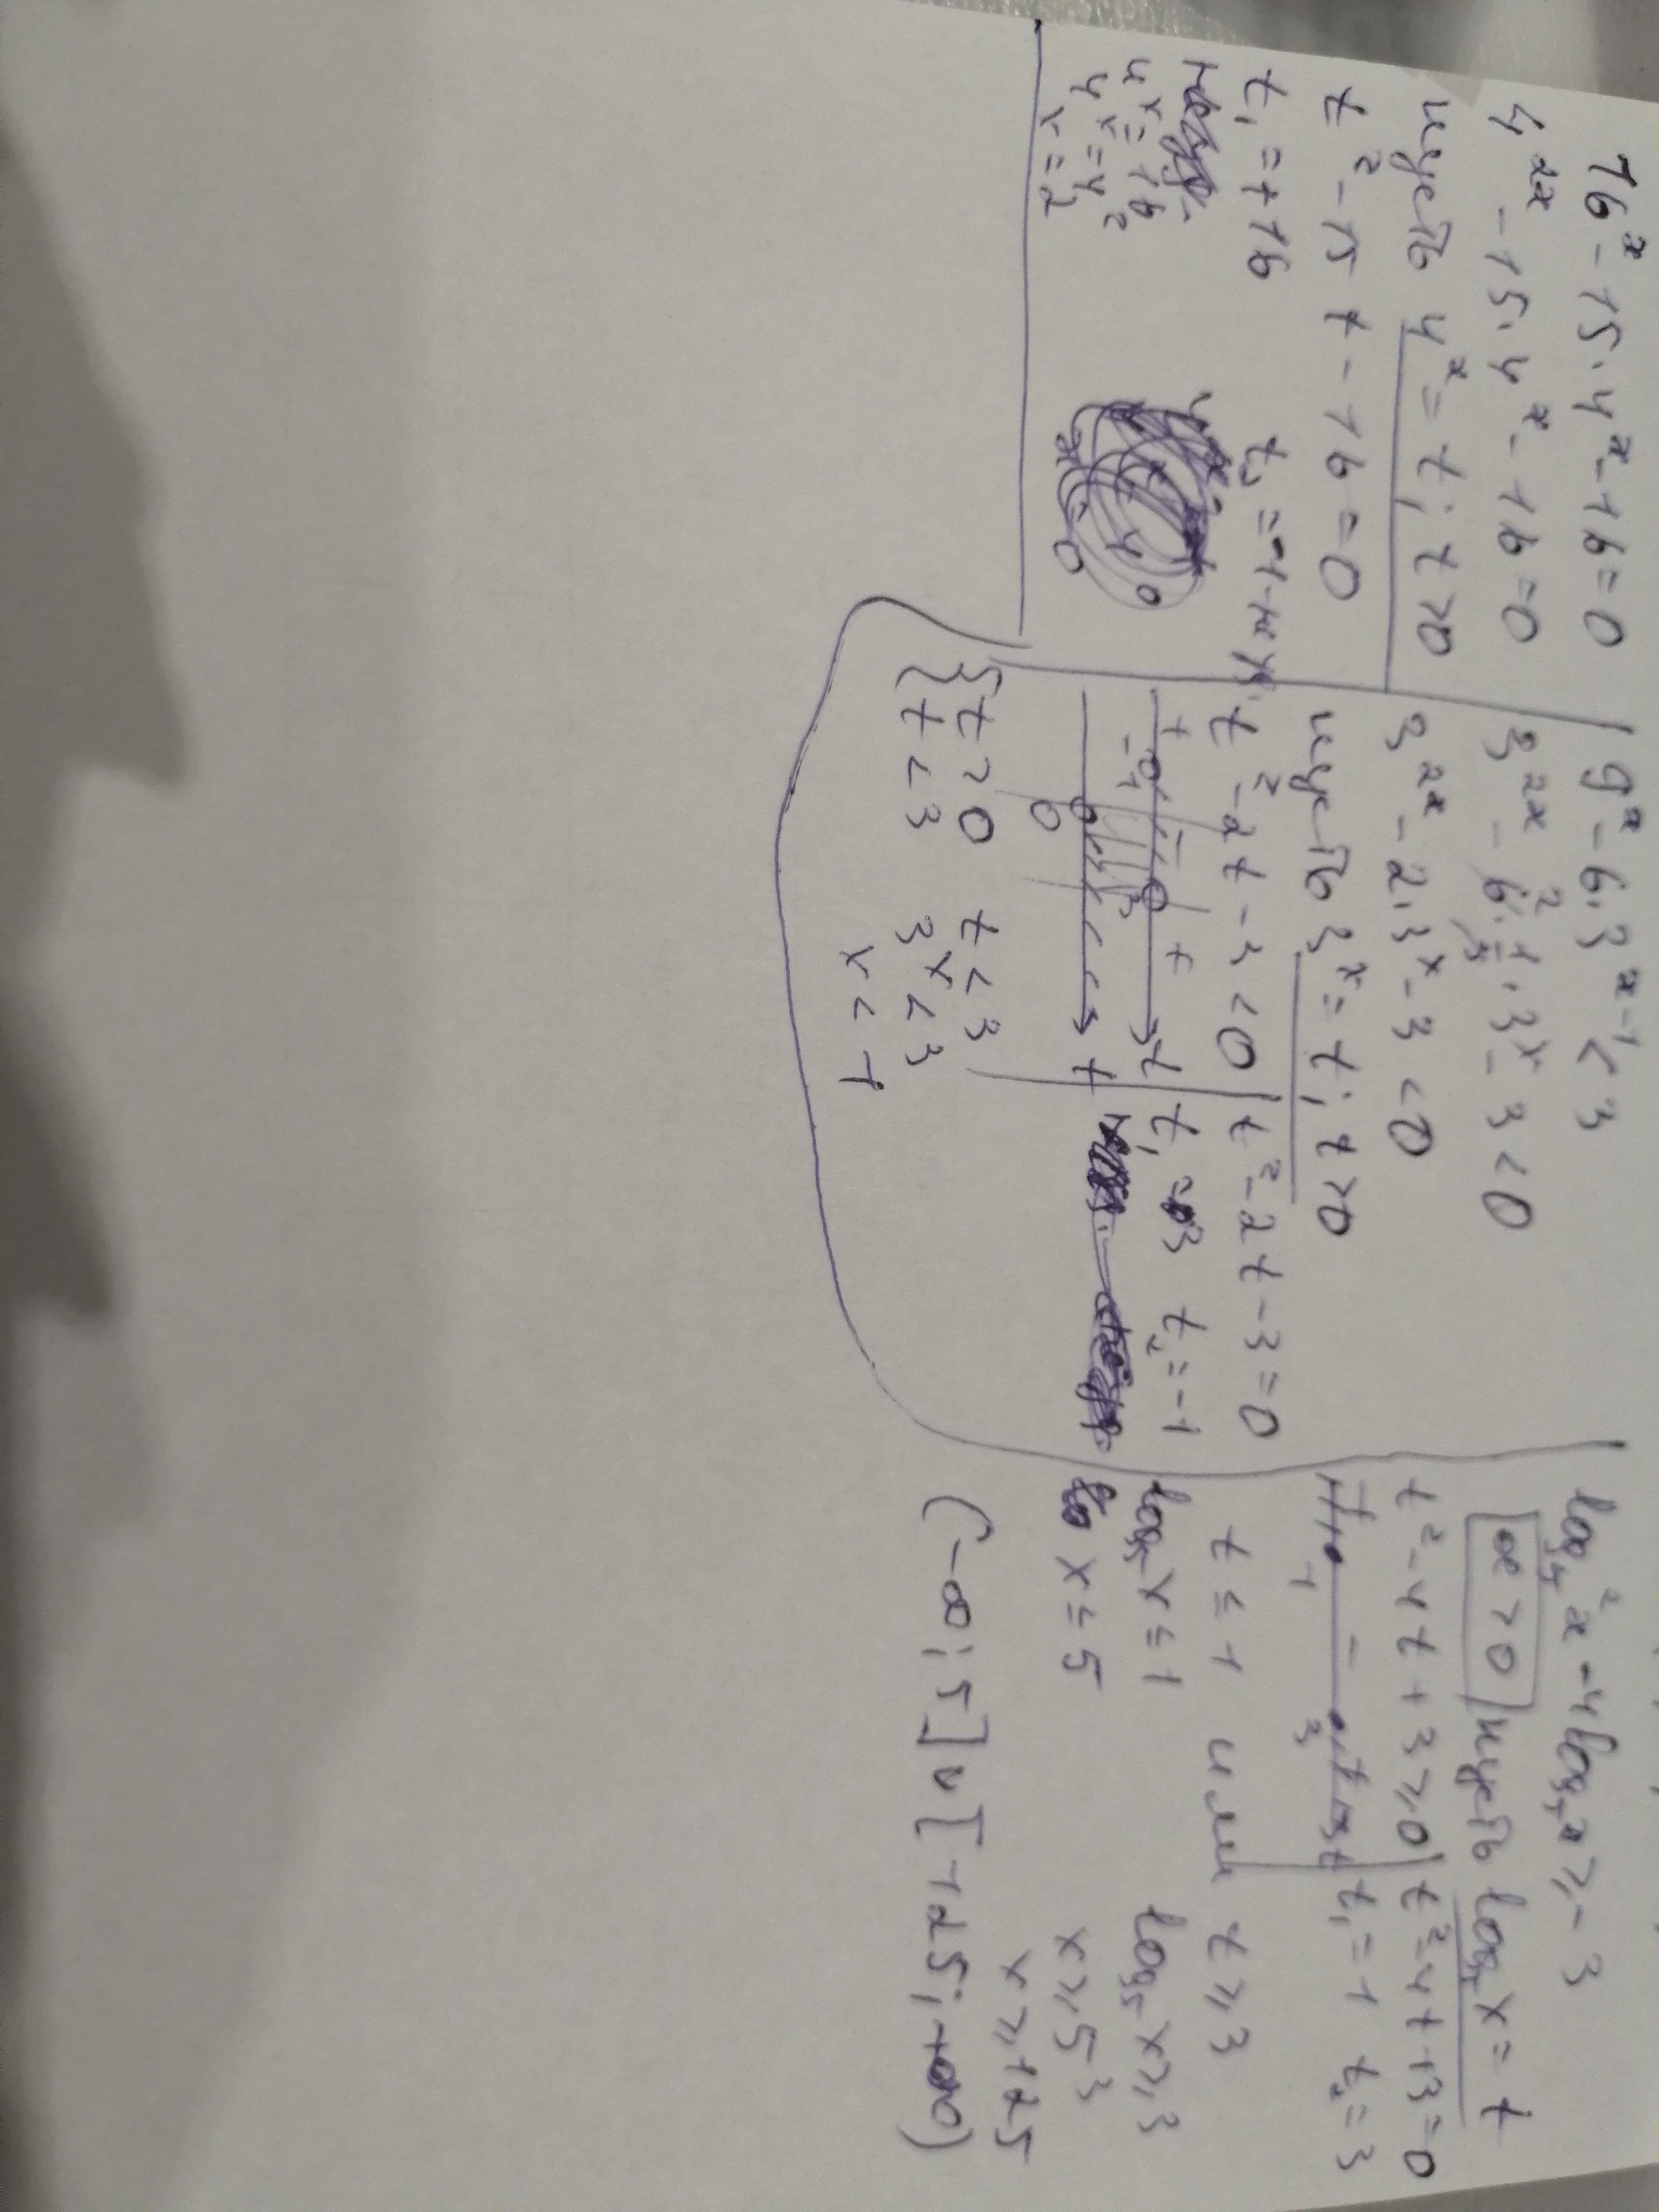 16ˣ - 15·4ˣ - 16 = 0
4²ˣ - 15·4ˣ - 16 = 0
пусть 4ˣ = t; t > 0
t² - 15t - 16 = 0
t₁ = +16 t₂ = -1
4ˣ = 16
4ˣ = 4²
x = 2
9ˣ - 6·3ˣ⁻¹ < 3
3²ˣ - 6·1/3·3ˣ - 3 < 0
3²ˣ - 2·3ˣ - 3 < 0
пусть 3ˣ = t; t > 0
t² - 2t - 3 < 0
+ - + t
-1 3
0 t
{ t > 0
t < 3
t < 3
3ˣ < 3
x < 1
t² - 2t - 3 = 0
t₁ = 3 t₂ = -1
log₅²x - 4log₅x ≥ -3
x > 0 пусть log₅x = t
t² - 4t + 3 ≥ 0
+ - + t
1 3
t² - 4t + 3 = 0
t₁ = 1 t₂ = 3
t ≤ 1 или t ≥ 3
log₅x ≤ 1 log₅x ≥ 3
x ≤ 5 x ≥ 5³
x ≥ 125
(-∞; 5] ∪ [125; +∞)